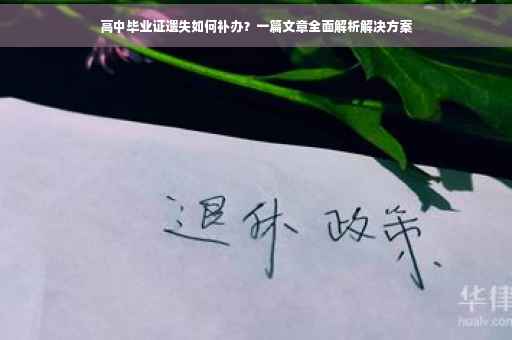 高中毕业证遗失如何补办？一篇文章全面解析解决方案
退休 政策
华律
hualv.com